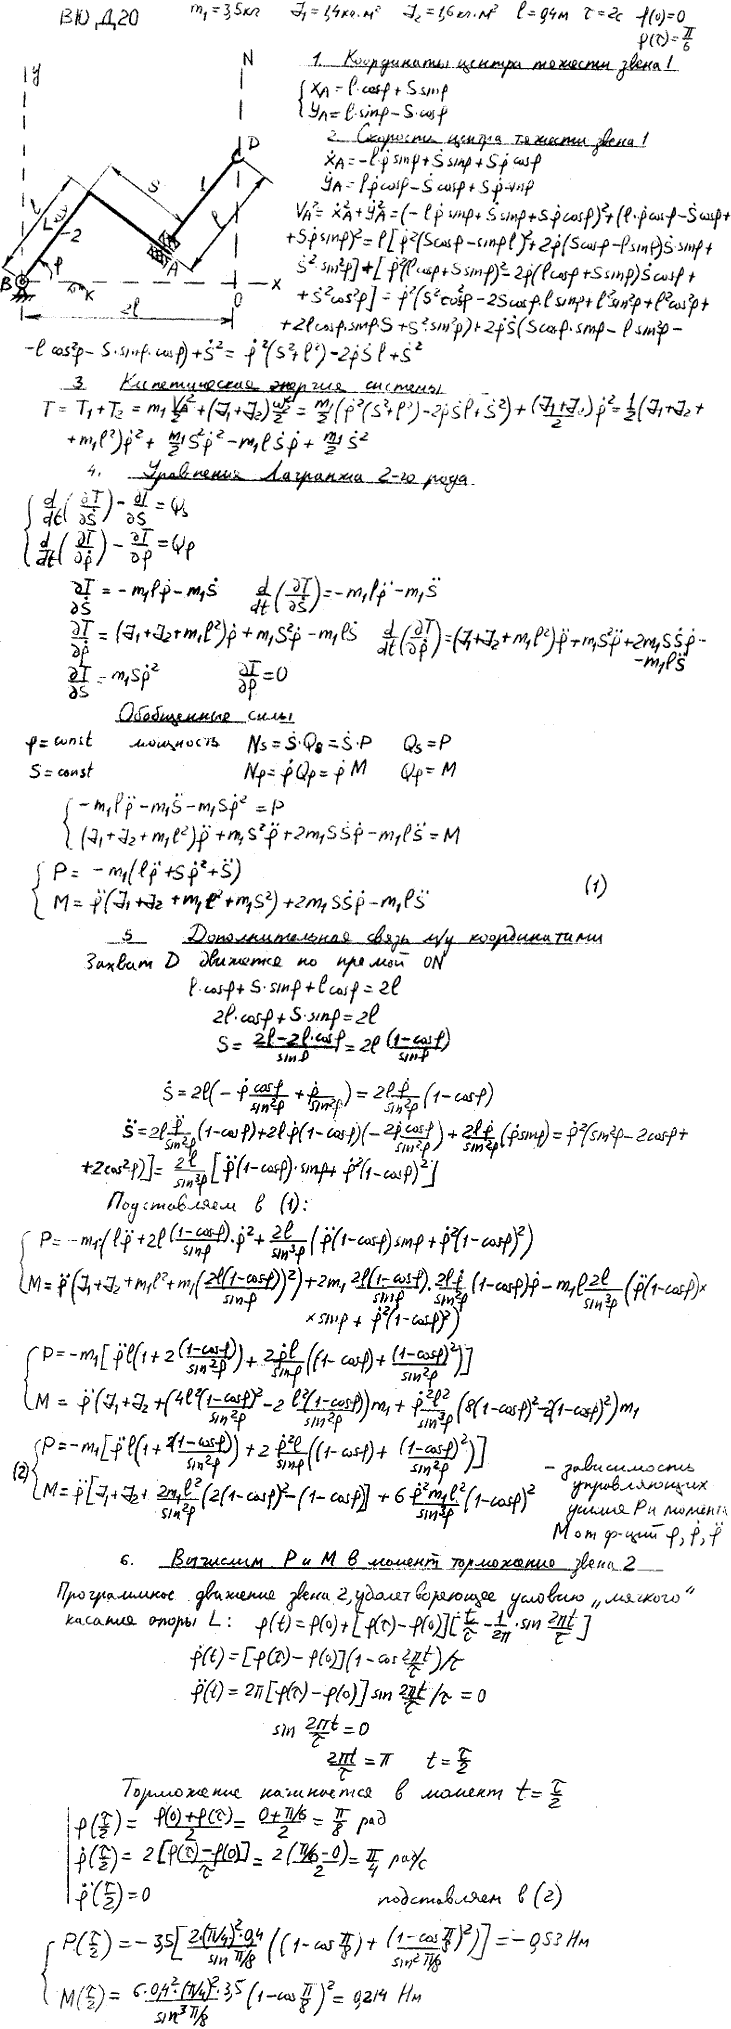 ВЮ Д20 m₁=3,5кг J₁=1,4кг·м² J₂=1,6кг·м² l=0,4м τ=2с φ(0)=0
φ(τ)=π/6
y N
D
1
S
l
l
L
2
φ
A
B K O X
2l
1. Координаты центра тяжести звена 1
{ X_A = l·cosφ + S sinφ
{ Y_A = l·sinφ − S·cosφ
2. Скорости центра тяжести звена 1
ẋ_A = −lφ̇ sinφ + Ṡ sinφ + Sφ̇ cosφ
ẏ_A = lφ̇ cosφ − Ṡ cosφ + Sφ̇ sinφ
V_A² = ẋ_A² + ẏ_A² = (−lφ̇ sinφ + Ṡ sinφ + Sφ̇ cosφ)² + (l·φ̇ cosφ − Ṡ cosφ +
+ Sφ̇ sinφ)² = l[φ̇²(S cosφ − sinφ l)² + 2φ̇(S cosφ − l sinφ)Ṡ·sinφ +
+ Ṡ²·sin²φ] + [φ̇²(l cosφ + S sinφ)² − 2φ̇(l cosφ + S sinφ)Ṡ cosφ +
+ Ṡ² cos²φ] = φ̇²(S² cos²φ − 2S cosφ l sinφ + l² sin²φ + l² cos²φ +
+ 2l cosφ·sinφ S + S² sin²φ) + 2φ̇Ṡ(S cosφ·sinφ − l sin²φ −
− l cos²φ − S·sinφ·cosφ) + Ṡ² = φ̇²(S² + l²) − 2φ̇Ṡl + Ṡ²
3 Кинетическая энергия системы
T = T₁ + T₂ = m₁ V_A²/2 + (J₁+J₂) ω²/2 = m₁/2 (φ̇²(S²+l²) − 2φ̇Ṡl + Ṡ²) + (J₁+J₂)/2 φ̇² = 1/2 (J₁+J₂+
+ m₁l²)φ̇² + m₁/2 S²φ̇² − m₁lṠφ̇ + m₁/2 Ṡ²
4. Уравнения Лагранжа 2-го рода
{ d/dt(∂T/∂Ṡ) − ∂T/∂S = Q_S
{ d/dt(∂T/∂φ̇) − ∂T/∂φ = Q_φ
∂T/∂Ṡ = −m₁lφ̇ − m₁Ṡ d/dt(∂T/∂Ṡ) = −m₁lφ̈ − m₁S̈
∂T/∂φ̇ = (J₁+J₂+m₁l²)φ̇ + m₁S²φ̇ − m₁lṠ d/dt(∂T/∂φ̇) = (J₁+J₂+m₁l²)φ̈ + m₁S²φ̈ + 2m₁SṠφ̇ −
− m₁lS̈
∂T/∂S = m₁Sφ̇² ∂T/∂φ = 0
Обобщенные силы
φ=const мощность N_S = Ṡ·Q_S = Ṡ·P Q_S = P
S=const N_φ = φ̇Q_φ = φ̇ M Q_φ = M
{ −m₁lφ̈ − m₁S̈ − m₁Sφ̇² = P
{ (J₁+J₂+m₁l²)φ̈ + m₁S²φ̈ + 2m₁SṠφ̇ − m₁lS̈ = M
{ P = −m₁(lφ̈ + Sφ̇² + S̈)
{ M = φ̈(J₁+J₂+m₁l²+m₁S²) + 2m₁SṠφ̇ − m₁lS̈ (1)
5 Дополнительная связь м/у координатами
Захват D движется по прямой ON
l·cosφ + S·sinφ + l cosφ = 2l
2l·cosφ + S·sinφ = 2l
S = (2l − 2l·cosφ)/sinφ = 2l (1−cosφ)/sinφ
Ṡ = 2l(−φ̇ cosφ/sin²φ + φ̇/sin²φ) = 2l φ̇/sin²φ (1−cosφ)
S̈ = 2l φ̈/sin²φ (1−cosφ) + 2lφ̇(1−cosφ)(−2φ̇ cosφ/sin²φ) + 2lφ̇/sin²φ (φ̇ sinφ) = φ̇²(sin²φ − 2cosφ +
+ 2cos²φ)] = 2l/sin³φ [φ̈(1−cosφ)·sinφ + φ̇²(1−cosφ)²]
Подставляем в (1):
{ P = −m₁(lφ̈ + 2l (1−cosφ)/sinφ · φ̇² + 2l/sin³φ (φ̈(1−cosφ) sinφ + φ̇²(1−cosφ)²)
{ M = φ̈(J₁+J₂+m₁l²+m₁(2l(1−cosφ)/sinφ)²) + 2m₁ 2l(1−cosφ)/sinφ · 2lφ̇/sin²φ (1−cosφ)φ̇ − m₁l 2l/sin³φ (φ̈(1−cosφ)×
× sinφ + φ̇²(1−cosφ)²)
{ P = −m₁[φ̈l(1+2(1−cosφ)/sin²φ) + 2φ̇l/sinφ ((1−cosφ) + (1−cosφ)²/sin²φ)]
{ M = φ̈(J₁+J₂+(4l²(1−cosφ)²/sin²φ − 2l²(1−cosφ)/sin²φ)m₁ + φ̇²l²/sin³φ (8(1−cosφ)²−2(1−cosφ)²)m₁
(2) { P = −m₁[φ̈l(1+2(1−cosφ)/sin²φ) + 2φ̇²l/sinφ ((1−cosφ) + (1−cosφ)²/sin²φ)] – зависимость
{ M = φ̈[J₁+J₂+2m₁l²/sin²φ (2(1−cosφ)²−(1−cosφ)] + 6φ̇²m₁l²/sin³φ (1−cosφ)² управляющих
усилия P и момента
M от ф-ций φ, φ̇, φ̈
6. Вычислим P и M в момент торможение звена 2
Программное движение звена 2, удовлетворяющее условию „мягкого"
касания опоры L: φ(t) = φ(0) + [φ(τ) − φ(0)][t/τ − 1/2π · sin 2πt/τ]
φ̇(t) = [φ(τ) − φ(0)](1 − cos 2πt/τ)/τ
φ̈(t) = 2π[φ(τ) − φ(0)] sin 2πt/τ /τ = 0
sin 2πt/τ = 0
2πt/τ = π t = τ/2
Торможение начинается в момент t = τ/2
φ(τ/2) = (φ(0)+φ(τ))/2 = (0+π/6)/2 = π/8 рад
φ̇(τ/2) = 2[φ(τ)−φ(0)]/τ = 2(π/6−0)/2 = π/4 рад/с
φ̈(τ/2) = 0 подставляем в (2)
{ P(τ/2) = −3,5[2·(π/4)²·0,4/sin π/8 ((1−cos π/8) + (1−cos π/8)²/sin² π/8)] = −0,53 Нм
{ M(τ/2) = 6·0,4²·(π/4)²·3,5/sin³ π/8 (1−cos π/8)² = 0,214 Нм